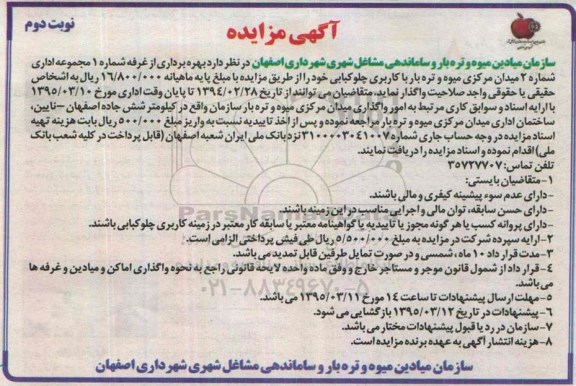 نوبت دوم
آگهی مزایده
سازمان میادین میوه و تره بار و ساماندهی مشاغل شهری شهرداری اصفهان در نظر دارد بهره برداری از غرفه شماره ۱ مجموعه اداری
شماره ۲ میدان مرکزی میوه و تره بار با کاربری چلوکبابی خود را از طریق مزایده با مبلغ پایه ماهیانه ۱۶/۸۰۰/۰۰۰ ریال به اشخاص
حقیقی یا حقوقی واجد صلاحیت واگذار نماید. متقاضیان می توانند از تاریخ ۱۳۹۴/۰۲/۲۸ تا پایان وقت اداری مورخ ۱۳۹۵/۰۳/۱۰
با ارایه اسناد و سوابق کاری مرتبط به امور واگذاری میدان مرکزی میوه و تره بار سازمان واقع در کیلومتر شش جاده اصفهان – نایین،
ساختمان اداری میدان مرکزی میوه و تره بار مراجعه نموده و پس از اخذ تاییدیه نسبت به واریز مبلغ ۵۰۰/۰۰۰ ریال بابت هزینه تهیه
اسناد مزایده در وجه حساب جاری شماره ۳۱۰۰۰۰۳۰۴۱۰۰۷ نزد بانک ملی ایران شعبه اصفهان (قابل پرداخت در کلیه شعب بانک
ملی) اقدام نموده و اسناد مزایده را دریافت نمایند.
تلفن تماس: ۳۵۷۲۷۷۰۷
۱- متقاضیان بایستی:
- دارای عدم سوء پیشینه کیفری و مالی باشند.
- دارای حسن سابقه، توان مالی و اجرایی مناسب در این زمینه باشند.
- دارای پروانه کسب یا هر گونه مجوز یا تاییدیه یا گواهینامه معتبر یا سابقه کار معتبر در زمینه کاربری چلوکبابی باشند.
۲- ارایه سپرده شرکت در مزایده به مبلغ ۵/۵۰۰/۰۰۰ ریال طی فیش پرداختی الزامی است.
۳- مدت قرار داد ۱۰ ماه، شمسی و در صورت تمایل طرفین قابل تمدید می باشد.
۴- قرار داد از شمول قانون موجر و مستاجر خارج و وفق ماده واحده لایحه قانونی راجع به نحوه واگذاری اماکن و میادین و غرفه ها
می باشد.
۵- مهلت ارسال پیشنهادات تا ساعت ۱۴ مورخ ۱۳۹۵/۰۳/۱۱ می باشد.
۶- پیشنهادات در تاریخ ۱۳۹۵/۰۳/۱۲ بازگشایی می شود.
۷- سازمان در رد یا قبول پیشنهادات مختار می باشد.
۸- هزینه انتشار آگهی به عهده برنده مزایده است.
سازمان میادین میوه و تره بار و ساماندهی مشاغل شهری شهرداری اصفهان
۰۲۱-۸۸۳۴۹۶۷۰-۵